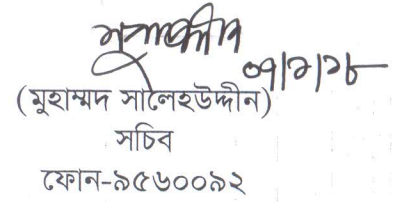 ০৭/২/১৮
(মুহাম্মদ সালেহউদ্দীন)
সচিব
ফোন-৯৫৬০০৯২